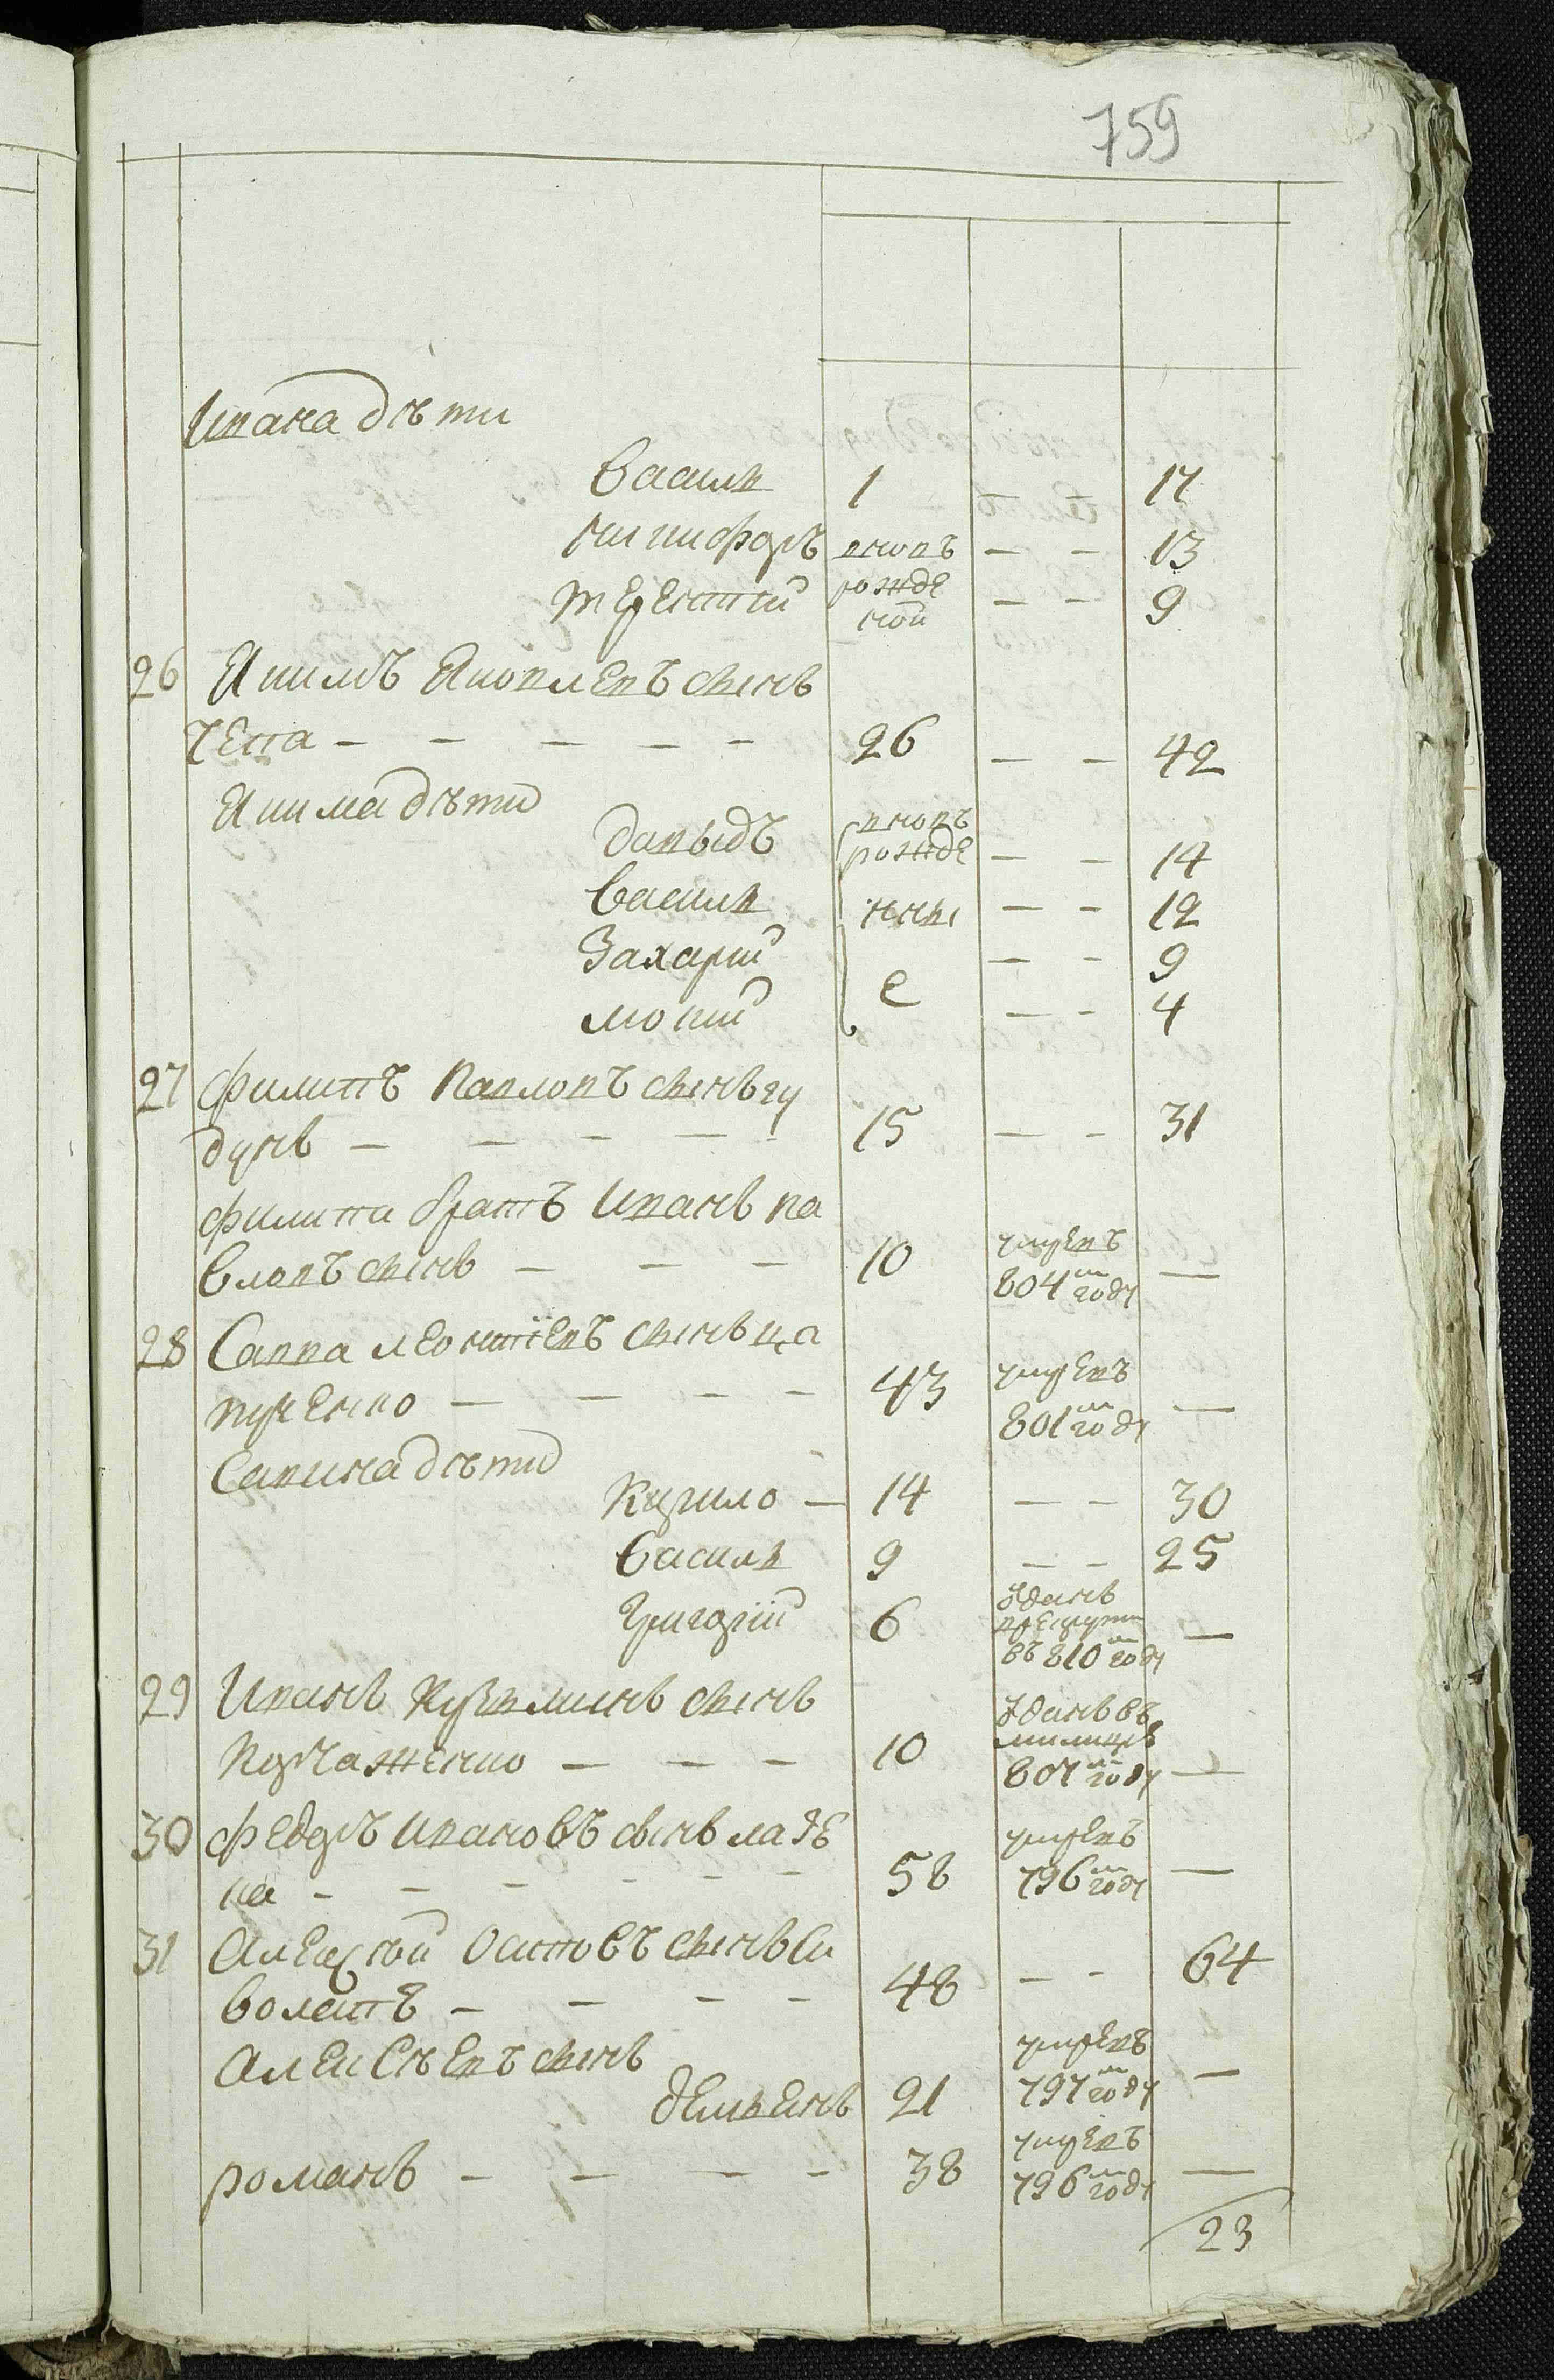 759
Ивана дѣти
Василь 1 — — 17
Никифоръ вновъ — — 13
Терентий рожденой — — 9
26 Якимъ Яковлевъ сынъ
Чепа — — — — — 26 — — 42
Якима дѣти
Давыдъ вновъ рожде — — 14
Василь нны — — 12
Захарий — — 9
Мокий е — — 4
27 Филипъ Павловъ сынъ гу
дунъ — — — — — 15 — — 31
Филипа братъ Иванъ Па
вловъ сынъ — — — 10 умревъ 804м году —
28 Савва Леонтіевъ сынъ ца
пуренко — — — — 43 умревъ 801м году —
Савина дѣти
Кирило — 14 — — 30
Василь 9 — — 25
Григорій 6 зданъ врекруты въ 810м году —
29 Иванъ Кузьминъ сынъ
Корчаженко — — — 10 зданъ въ милицию 807м году —
30 Федоръ Ивановъ сынъ ладе
ка — — — — — — 58 умревъ 796м году —
31 Алексѣй Осиповъ сынъ Си
волапъ — — — — 48 — — 64
Алексѣевъ сынъ
Демьянъ 21 умревъ 797м году —
романъ — — — — 38 умревъ 796м году —
23